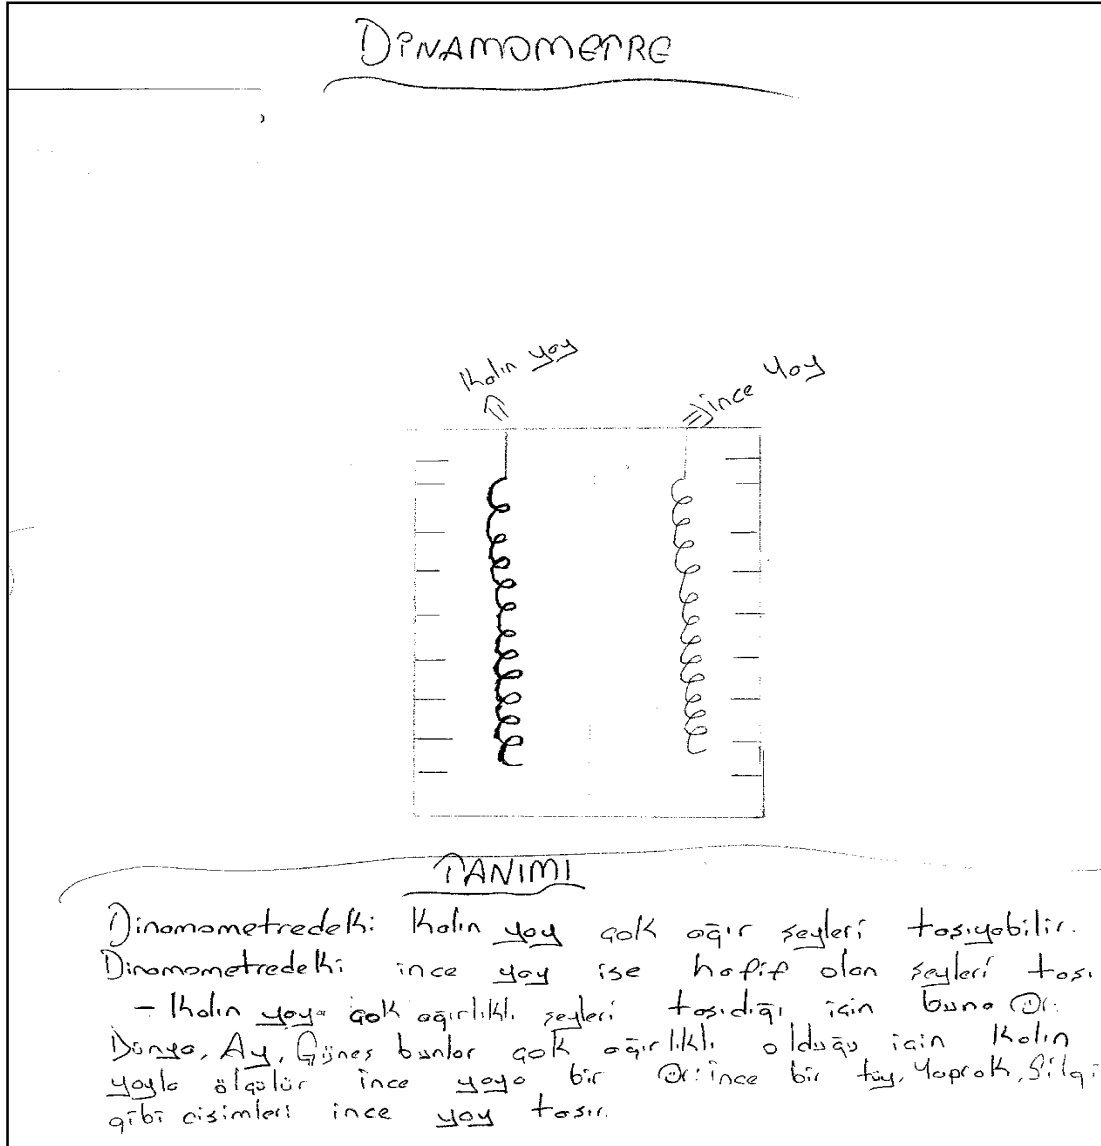 DİNAMOMETRE
Kalın yay
ince Yay
TANIMI
Dinamometredeki Kalın yay çok ağır şeyleri taşıyabilir.
Dinamometredeki ince yay ise hafif olan şeyleri taşı
- Kalın yay çok ağırlıklı şeyleri taşıdığı için buna Ör:
Dünya, Ay, Güneş bunlar çok ağırlıklı olduğu için Kalın
yayla ölçülür ince yaya bir Ör: ince bir tüy, Yaprak, Silgi
gibi cisimleri ince yay taşır.